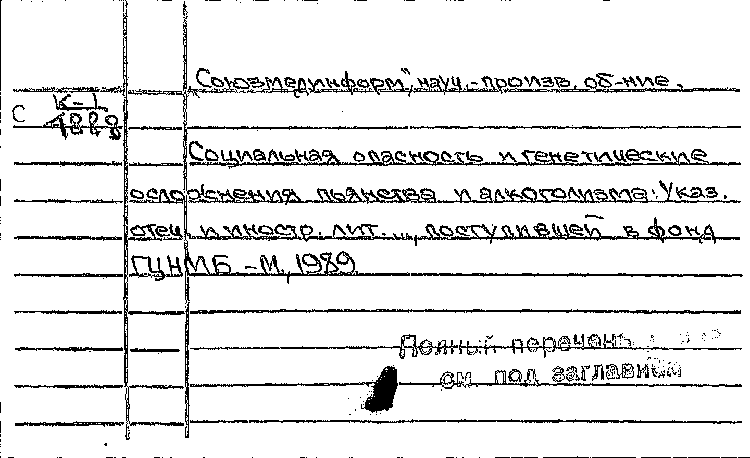 "Союзмединформ", науч.-произв. об-ние.
С К-1
4889
Социальная опасность и генетические
осложнения пьянства и алкоголизма: Указ.
отеч. и иностр. лит. ..., поступившей в фонд
ГЦНМБ - М., 1989
Полный перечень
см. под заглавием